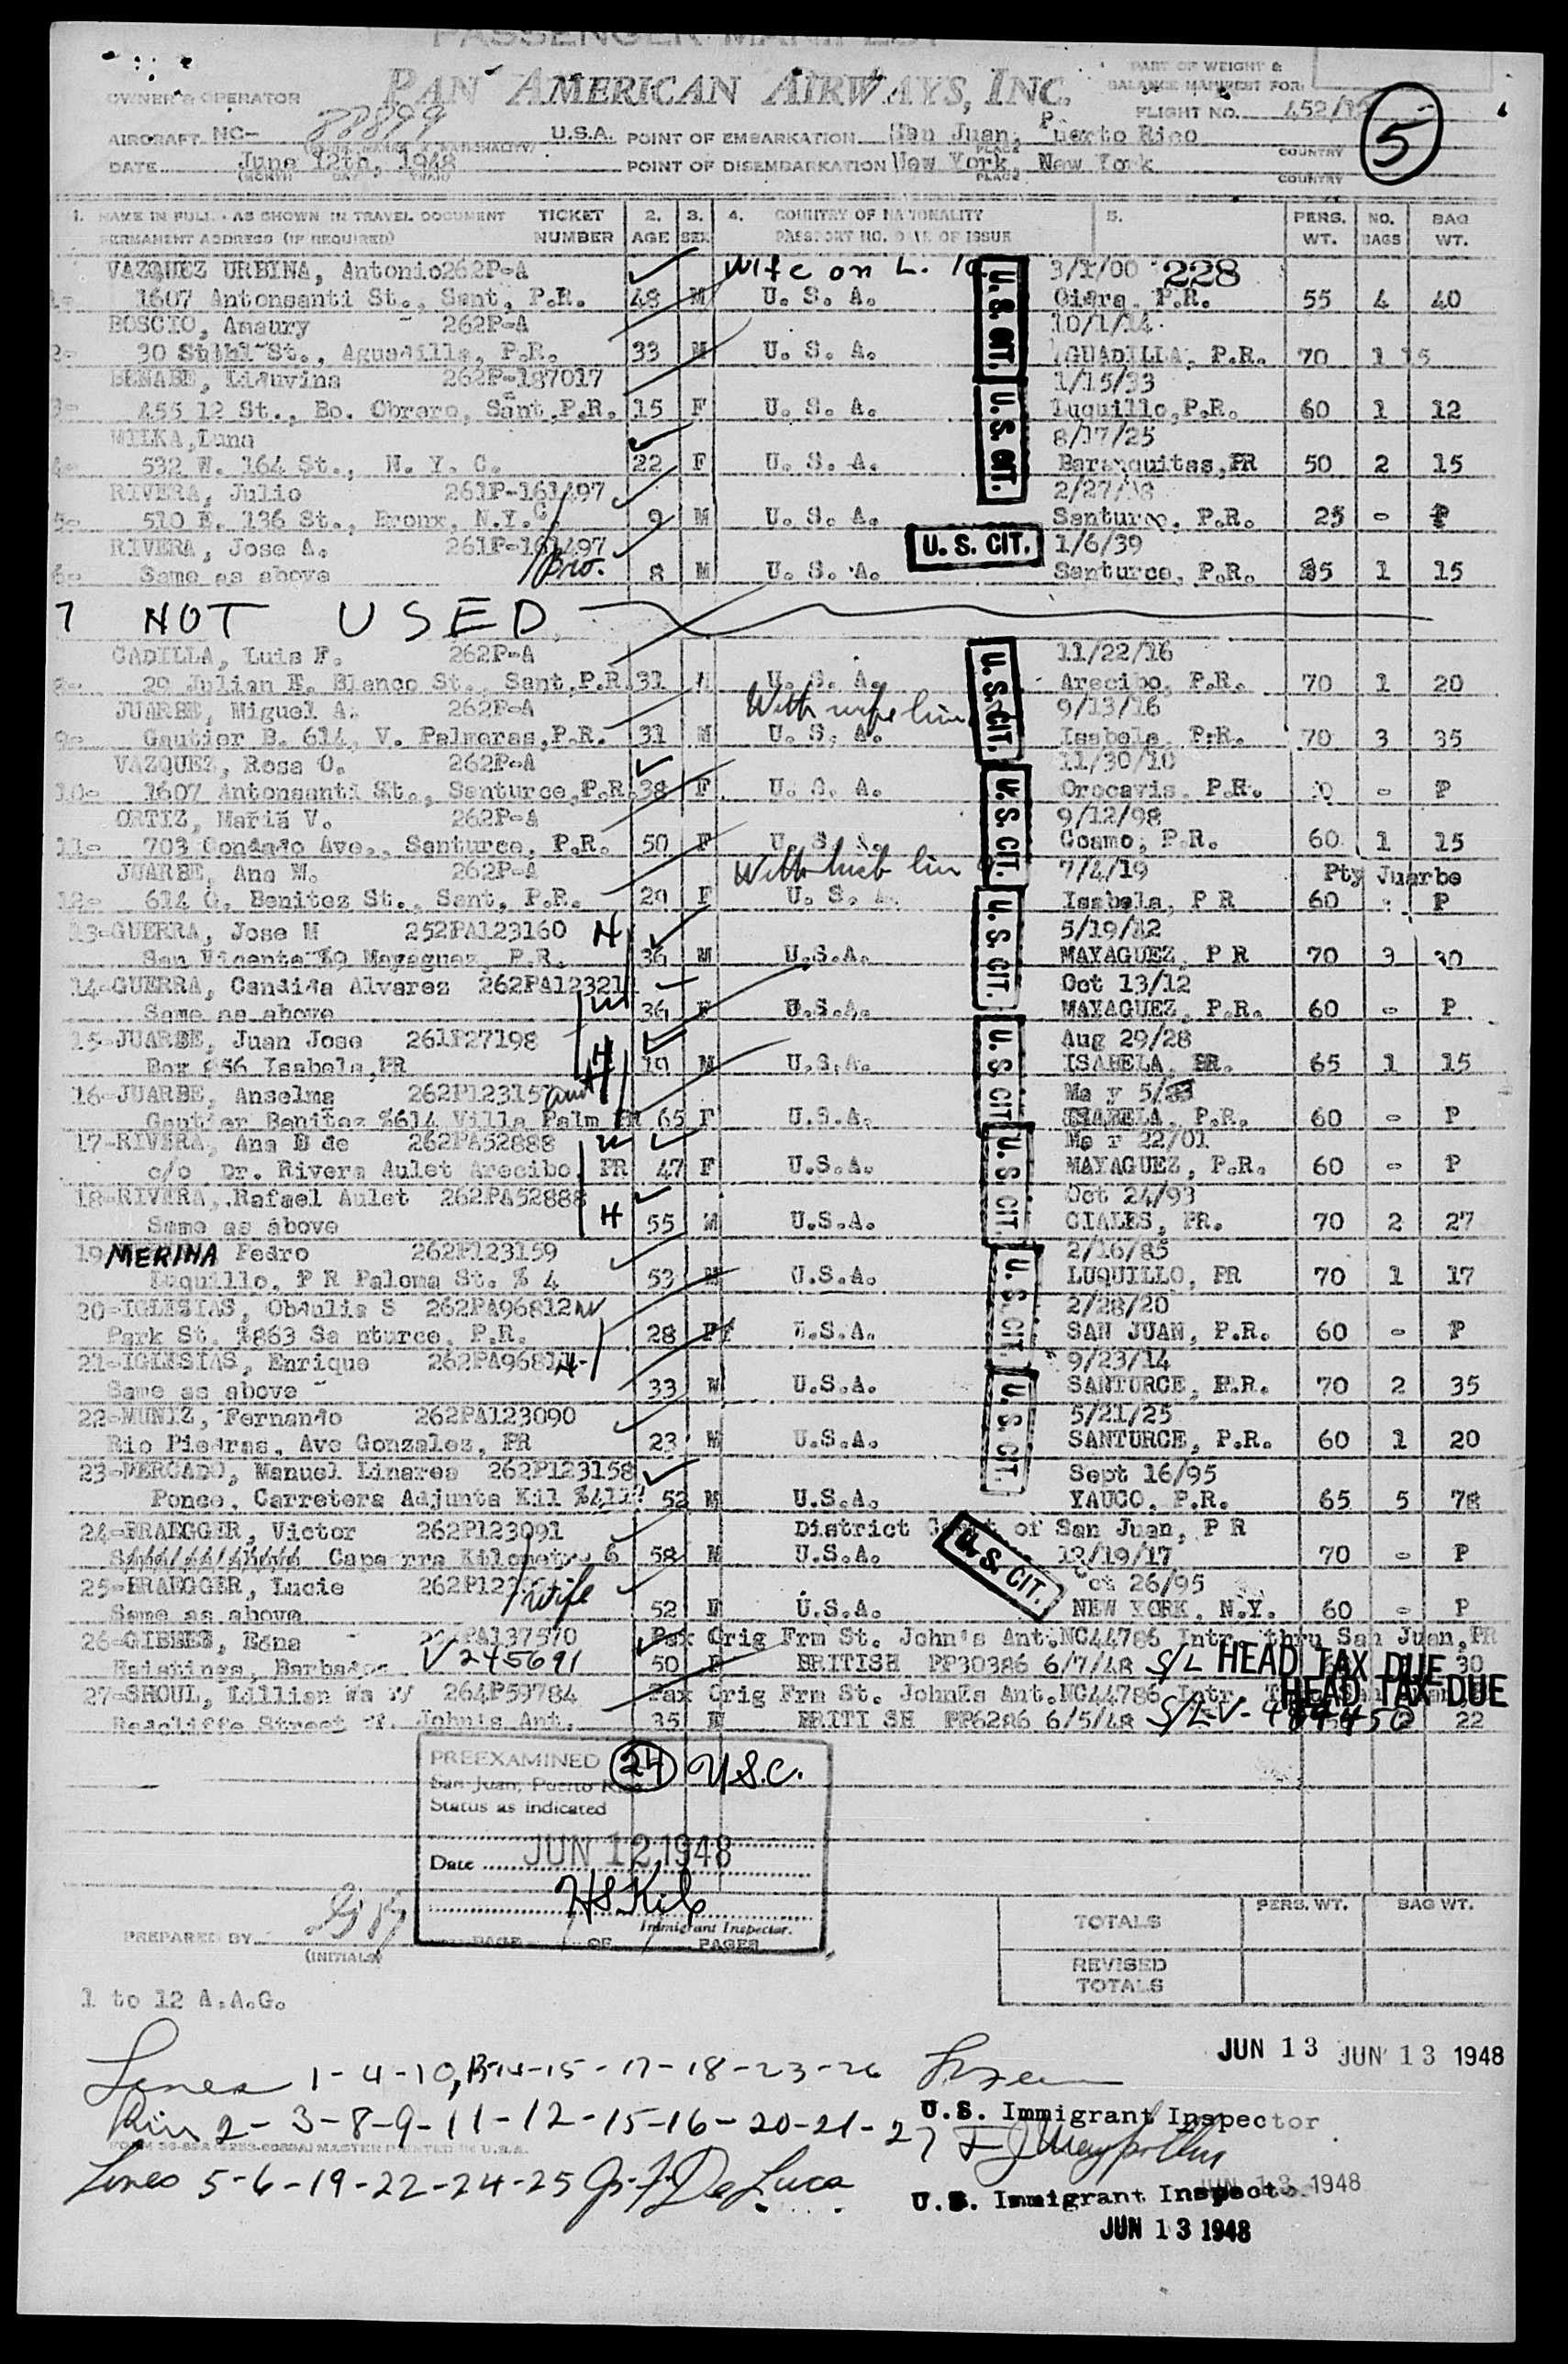 PASSENGER MANIFEST
PAN AMERICAN AIRWAYS, INC.
PART OF WEIGHT &
BALANCE MANIFEST FOR:
OWNER & OPERATOR
FLIGHT NO. 452/
5
AIRCRAFT NC- 88899 U.S.A. POINT OF EMBARKATION San Juan, Puerto Rico
PLACE COUNTRY
DATE June 12th, 1948 POINT OF DISEMBARKATION New York, New York
(MONTH DAY YEAR) PLACE COUNTRY
1. NAME IN FULL - AS SHOWN IN TRAVEL DOCUMENT TICKET 2. 3. 4. COUNTRY OF NATIONALITY 5. PERS. NO. BAG
PERMANENT ADDRESS (IF REQUIRED) NUMBER AGE SEX PASSPORT NO. DATE OF ISSUE WT. BAGS WT.
VAZQUEZ URBINA, Antonio 262P-A Wife on L. 10 3/1/00 228
1- 1607 Antonsanti St., Sant, P.R. 48 M U. S. A. P.R. 55 4 40
BOSCIO, Amaury 262P-A 10/1/14
2- 30 St., Aguadilla, P.R. 33 M U. S. A. AGUADILLA, P.R. 70 1 15
BENABE, Liduvina 262P-187017 1/15/33
3- 455 12 St., Bo. Obrero, Sant, P.R. 15 F U. S. A. Luquillo, P.R. 60 1 12
WILKA, Luna 8/17/25
4- 532 W. 164 St., N. Y. C. 22 F U. S. A. Baranquitas, PR 50 2 15
RIVERA, Julio 261P-161497 2/27/
5- 510 E. 136 St., Bronx, N.Y.C. 9 M U. S. A. Santurce, P.R. 25 - P
RIVERA, Jose A. 261P-161497 Bro. U. S. CIT. 1/6/39
6- Same as above 8 M U. S. A. Santurce, P.R. 1 15
7 NOT USED
CADILLA, Luis F. 262P-A 11/22/16
8- 29 Julian E. Blanco St., Sant, P.R. 31 M U. S. A. Arecibo, P.R. 70 1 20
JUARBE, Miguel A. 262P-A With wife line 9/13/16
9- Gautier B. 614, V. Palmeras, P.R. 31 M U. S. A. Isabela, P.R. 70 3 35
VAZQUEZ, Rosa O. 262P-A 11/30/10
10- 1607 Antonsanti St., Santurce, P.R. 38 F U. S. A. Orocavis, P.R. - P
ORTIZ, Maria V. 262P-A 9/12/98
11- 703 Condado Ave., Santurce, P.R. 50 F U. S. A. Coamo, P.R. 60 1 15
JUARBE, Ana M. 262P-A With husb line 7/4/19 Pty Juarbe
12- 614 G. Benitez St., Sant, P.R. 29 F U. S. A. Isabela, P R 60 - P
13-GUERRA, Jose M 252PA123160 H 5/19/12
San Vicente #9 Mayaguez, P.R. 36 M U.S.A. MAYAGUEZ, P R 70 3 30
14-GUERRA, Candida Alvarez 262PA123211 W Oct 13/12
Same as above 36 F U.S.A. MAYAGUEZ, P.R. 60 - P
15-JUARBE, Juan Jose 261P27198 H Aug 29/28
Box 856 Isabela, PR 19 M U.S.A. ISABELA, PR. 65 1 15
16-JUARBE, Anselma 262P12315 aunt Ma y 5/
Gautier Benitez #614 Villa Palm PR 65 F U.S.A. ISABELA, P.R. 60 - P
17-RIVERA, Ana B de 262PA52888 W Ma r 22/01
c/o Dr. Rivera Aulet Arecibo, PR 47 F U.S.A. MAYAGUEZ, P.R. 60 - P
18-RIVERA, Rafael Aulet 262PA52888 H Oct 24/93
Same as above 55 M U.S.A. CIALES, PR. 70 2 27
19 MERINA Pedro 262P123159 2/16/85
Luquillo, P R Paloma St. # 4 53 M U.S.A. LUQUILLO, PR 70 1 17
20-IGLESIAS, Obdulia S 262PA96812 W 2/28/20
Park St. 1863 Sa nturce, P.R. 28 F U.S.A. SAN JUAN, P.R. 60 - P
21-IGLESIAS, Enrique 262PA968 H 9/23/14
Same as above 33 M U.S.A. SANTURCE, P.R. 70 2 35
22-MUNIZ, Fernando 262PA123090 5/21/25
Rio Piedras, Ave Gonzalez, PR 23 M U.S.A. SANTURCE, P.R. 60 1 20
23-MERCADO, Manuel Linares 262P123158 Sept 16/95
Ponce, Carretera Adjunta Kil 52 M U.S.A. YAUCO, P.R. 65 5 78
24-BRAEGGER, Victor 262P123091 District Court of San Juan, P R
Caparra Kilometro 6 58 M U.S.A. 12/19/17 70 - P
25-BRAEGGER, Lucie 262P123 Wife Oct 26/95
Same as above 52 F U.S.A. NEW YORK, N.Y. 60 - P
26-GIBBES, Edna PA137570 Pax Orig Frm St. John's Ant. NC44786 Intr. thru San Juan, PR
Hastings, Barbados V 245691 50 F BRITISH PP30386 6/7/48 S/L HEAD TAX DUE 30
27-SHOUL, Lillian 264P59784 Pax Orig Frm St. Johns Ant. NC44786 Intr. HEAD TAX DUE
Redcliffe Street St. John's Ant. 35 F BRITI SH PP6286 6/5/48 S/L V- 22
U. S. CIT.
U. S. CIT.
U. S. CIT.
U. S. CIT.
U. S. CIT.
U. S. CIT.
U. S. CIT.
U. S. CIT.
U. S. CIT.
U. S. CIT.
PREEXAMINED 24 U.S.C.
San Juan, Puerto Rico
Status as indicated
Date JUN 12 1948
Immigrant Inspector.
PREPARED BY
(INITIALS)
PAGE 1 OF 1 PAGES
PERS. WT. BAG WT.
TOTALS
REVISED
TOTALS
1 to 12 A.A.G.
JUN 13 JUN 13 1948
Lines 1-4-10, -15-17-18-23-26
U.S. Immigrant Inspector
2-3-8-9-11-12-15-16-20-21-27
Lines 5-6-19-22-24-25 G. F. DeLuca
JUN 13 1948
U.S. Immigrant Inspector
JUN 13 1948